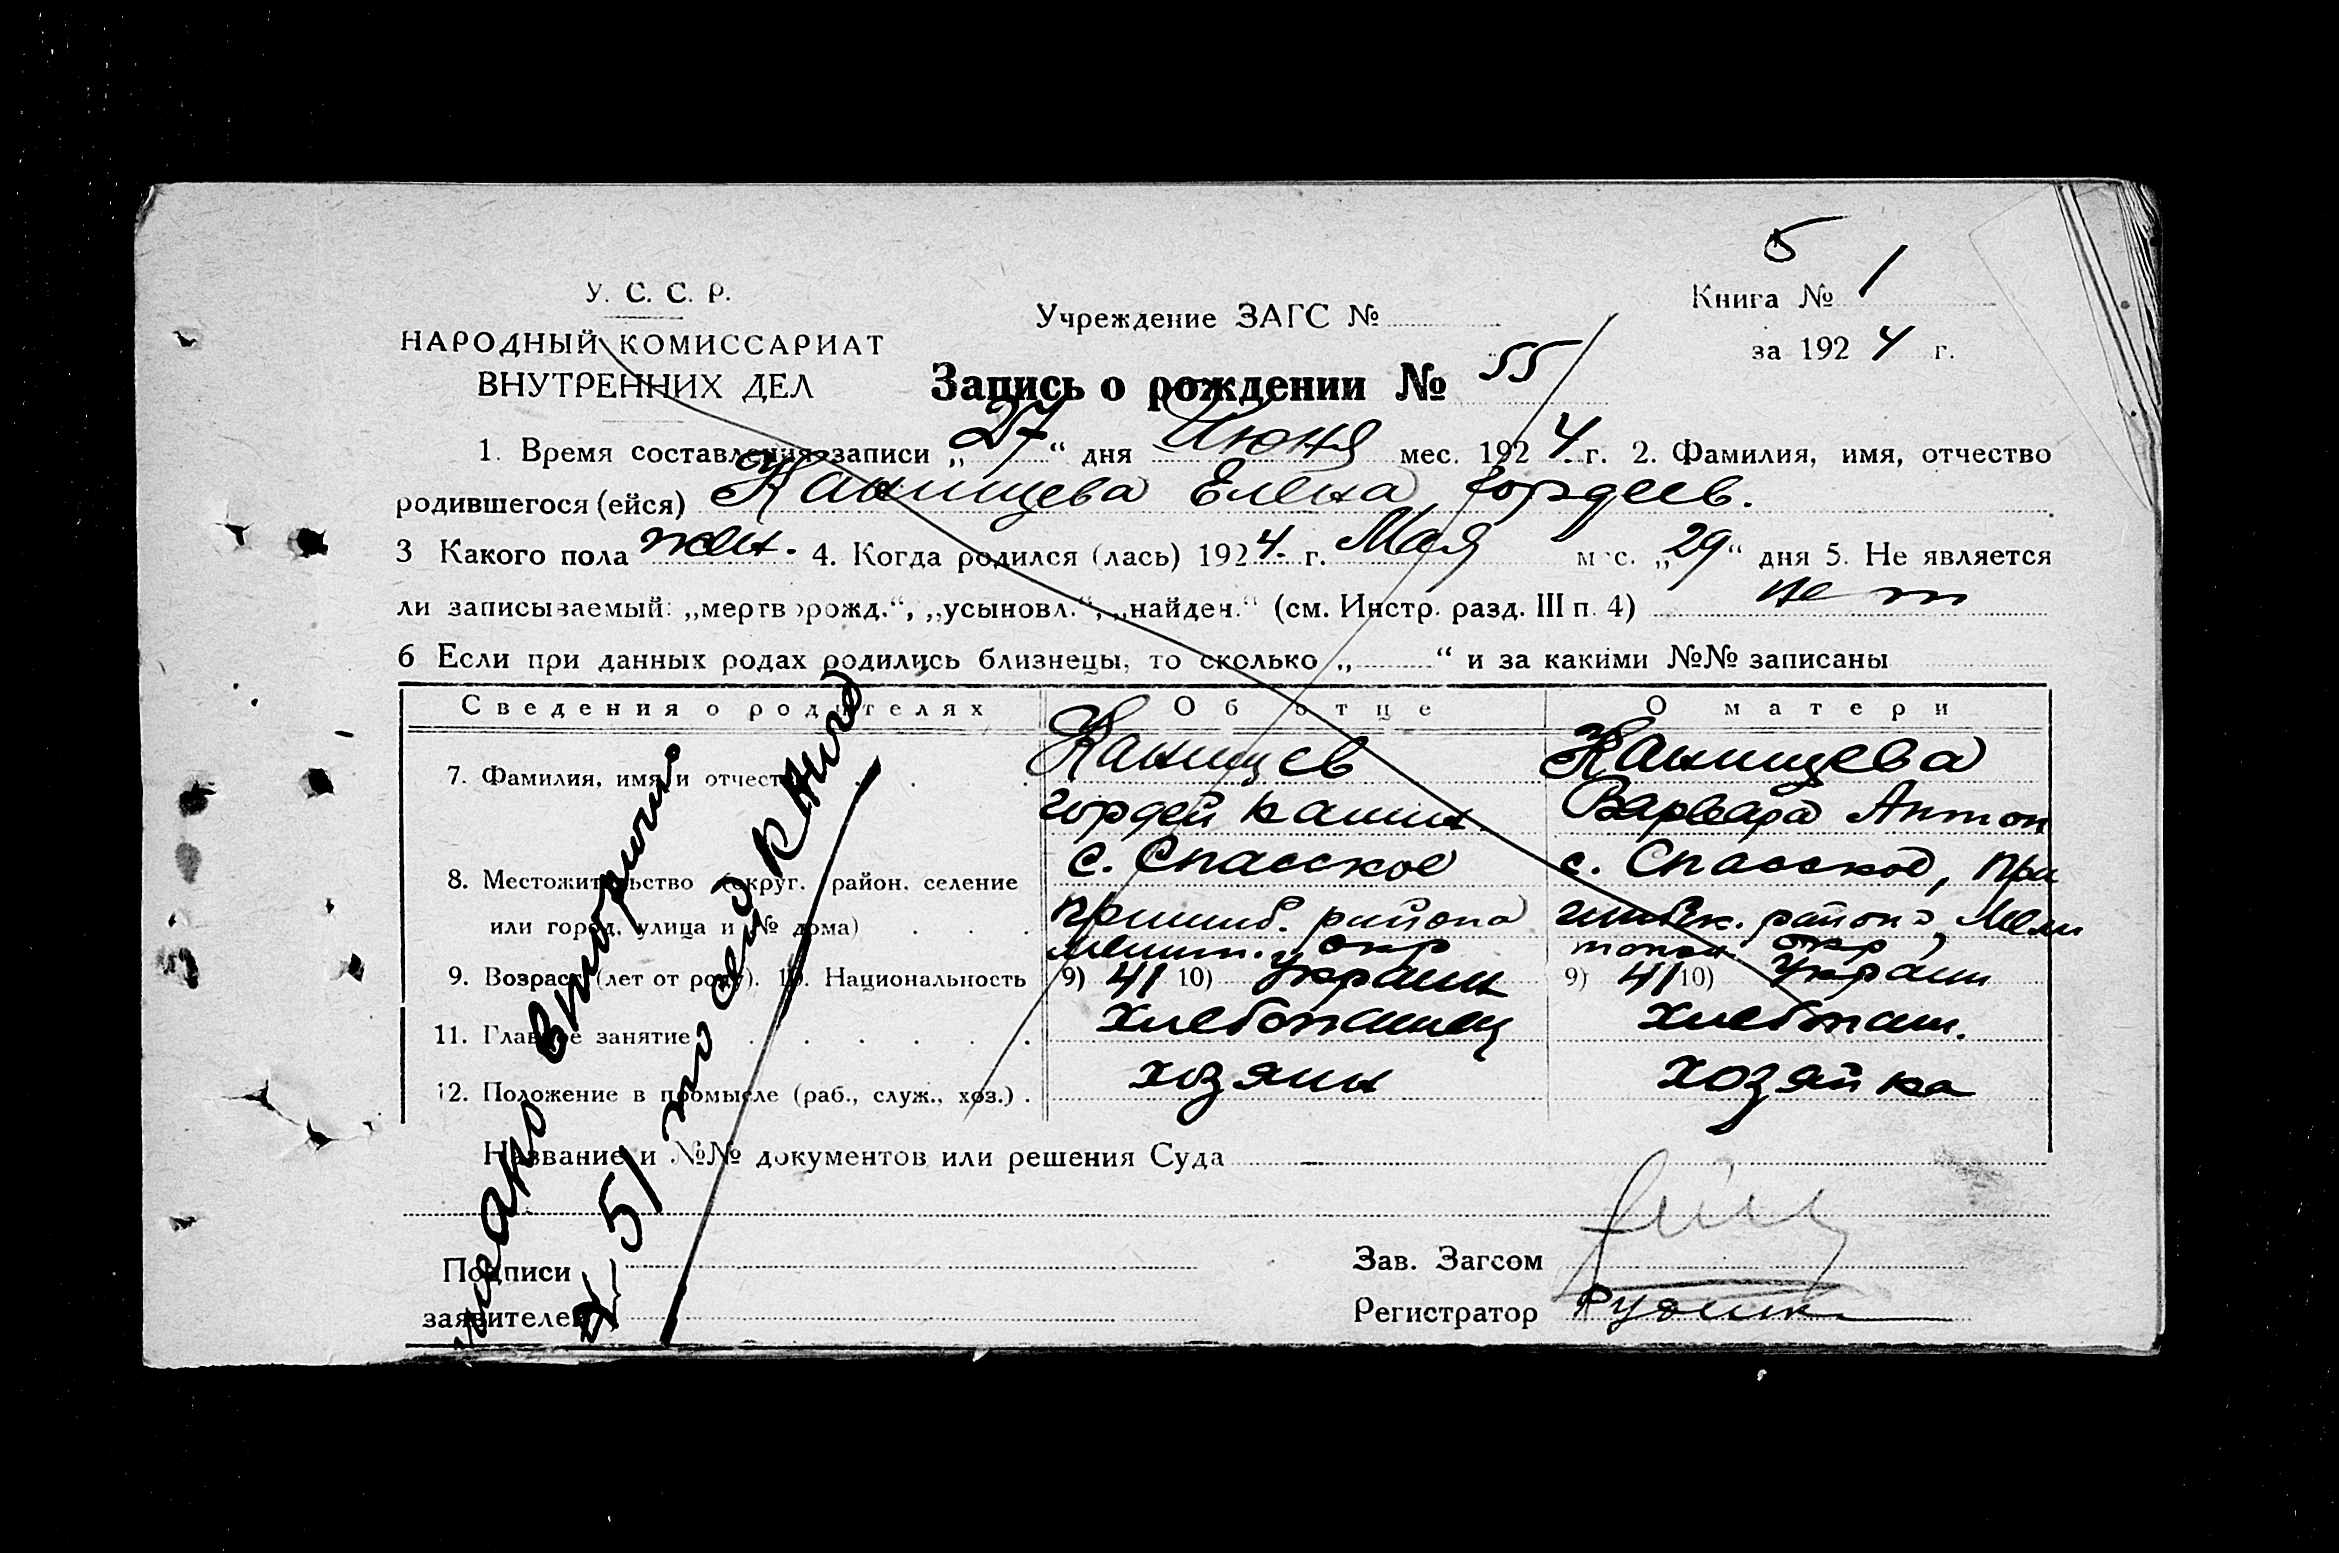 5
У. С. С. Р.
НАРОДНЫЙ КОМИССАРИАТ
ВНУТРЕННИХ ДЕЛ
Учреждение ЗАГС №
Книга № 1
за 1924 г.
Запись о рождении № 55
1. Время составления записи „27“ дня Июня мес. 1924 г. 2. Фамилия, имя, отчество
родившегося (ейся) Канищева Елена Гордеев.
3 Какого пола жен. 4. Когда родился (лась) 1924 г. Мая мес. „29“ дня 5. Не является
ли записываемый: „мертворожд.“, „усыновл.“, „найден.“ (см. Инстр. разд. III п. 4) нет
6 Если при данных родах родились близнецы, то сколько „ “ и за какими №№ записаны
Сведения о родителях Об отце О матери
7. Фамилия, имя и отчество Канищев Канищева
Гордей Варвара Антон
8. Местожительство (округ. район. селение с. Спасское с. Спасское, При
или город, улица и № дома) Пришиб. района шибск. района, Мели
Мелит. окр топол. окр,
9. Возраст (лет от роду). 10. Национальность 9) 41 10) Украин 9) 41 10) Украин
11. Главное занятие Хлебопашец Хлебопаш.
12. Положение в промысле (раб., служ., хоз.) хозяин хозяйка
Название и №№ документов или решения Суда
Подписи
заявителей
Зав. Загсом
Регистратор
вторично
№ 51 по сей книге